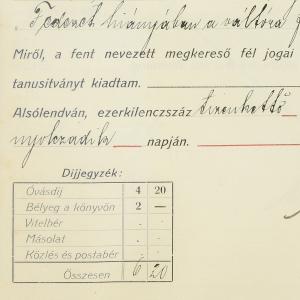 „Fedezet hiányában a váltóra
Miről, a fent nevezett megkereső fél jogai
tanusitványt kiadtam.
Alsólendván, ezerkilenczszáz tizenkettő
nyolczadik napján.
Dijjegyzék:
Óvásdij 4 20
Bélyeg a könyvön 2 —
Vitelbér . .
Másolat . .
Közlés és postabér . .
Összesen 6 20